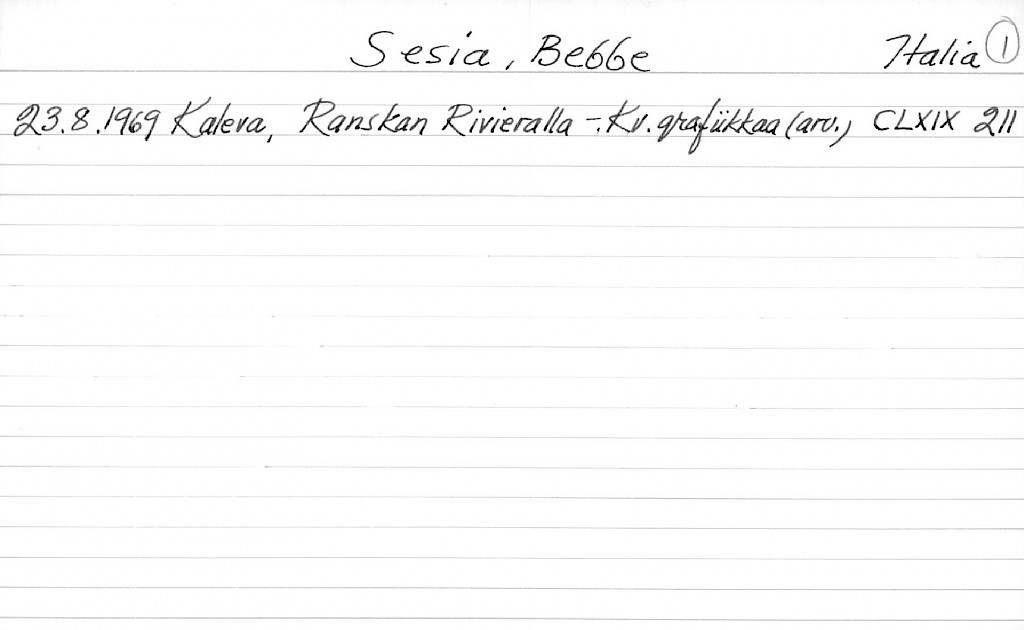 Sesia, Bebbe Italia 1
23.8.1969 Kaleva, Ranskan Rivieralla -. Kv. grafiikkaa (arv.) CLXIX 211